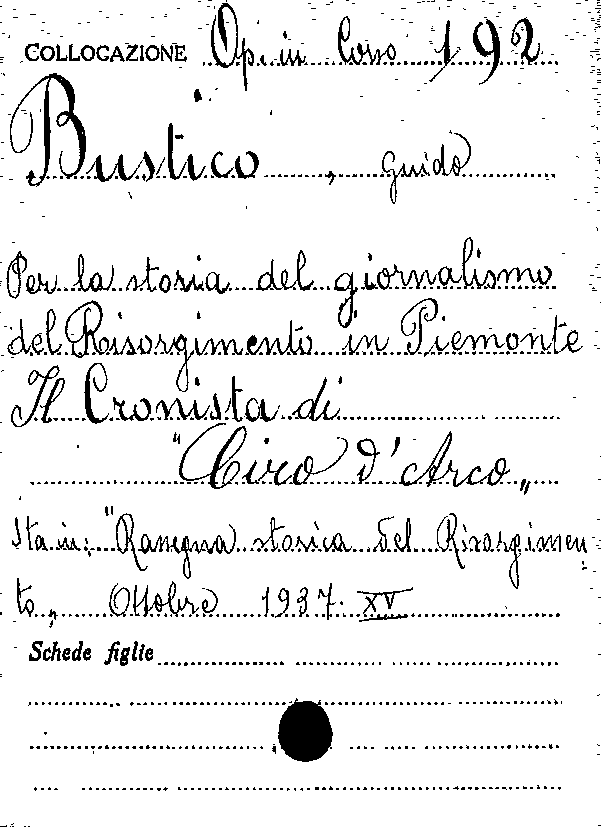 COLLOCAZIONE Op. in Corso 192
Bustico, Guido
Per la storia del giornalismo
del Risorgimento in Piemonte
Il Cronista di
"Ciro d'Arco„
Sta in: "Rassegna storica del Risorgimen-
to„ Ottobre 1937. XV
Schede figlie